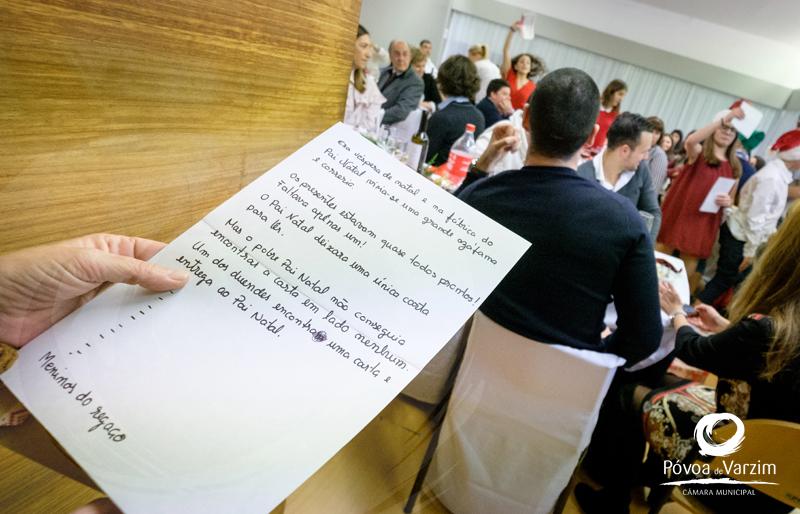 Era véspera de natal e na fábrica do
Pai Natal vivia-se uma grande azáfama
e correria.
Os presentes estavam quase todos prontos!
Faltava apenas um!
O Pai Natal deixara uma única carta
para ler.
Mas o pobre Pai Natal não conseguia
encontrar a carta em lado nenhum.
Um dos duendes encontra uma carta e
entrega ao Pai Natal.
Meninos do regaço
Póvoa de Varzim
CÂMARA MUNICIPAL